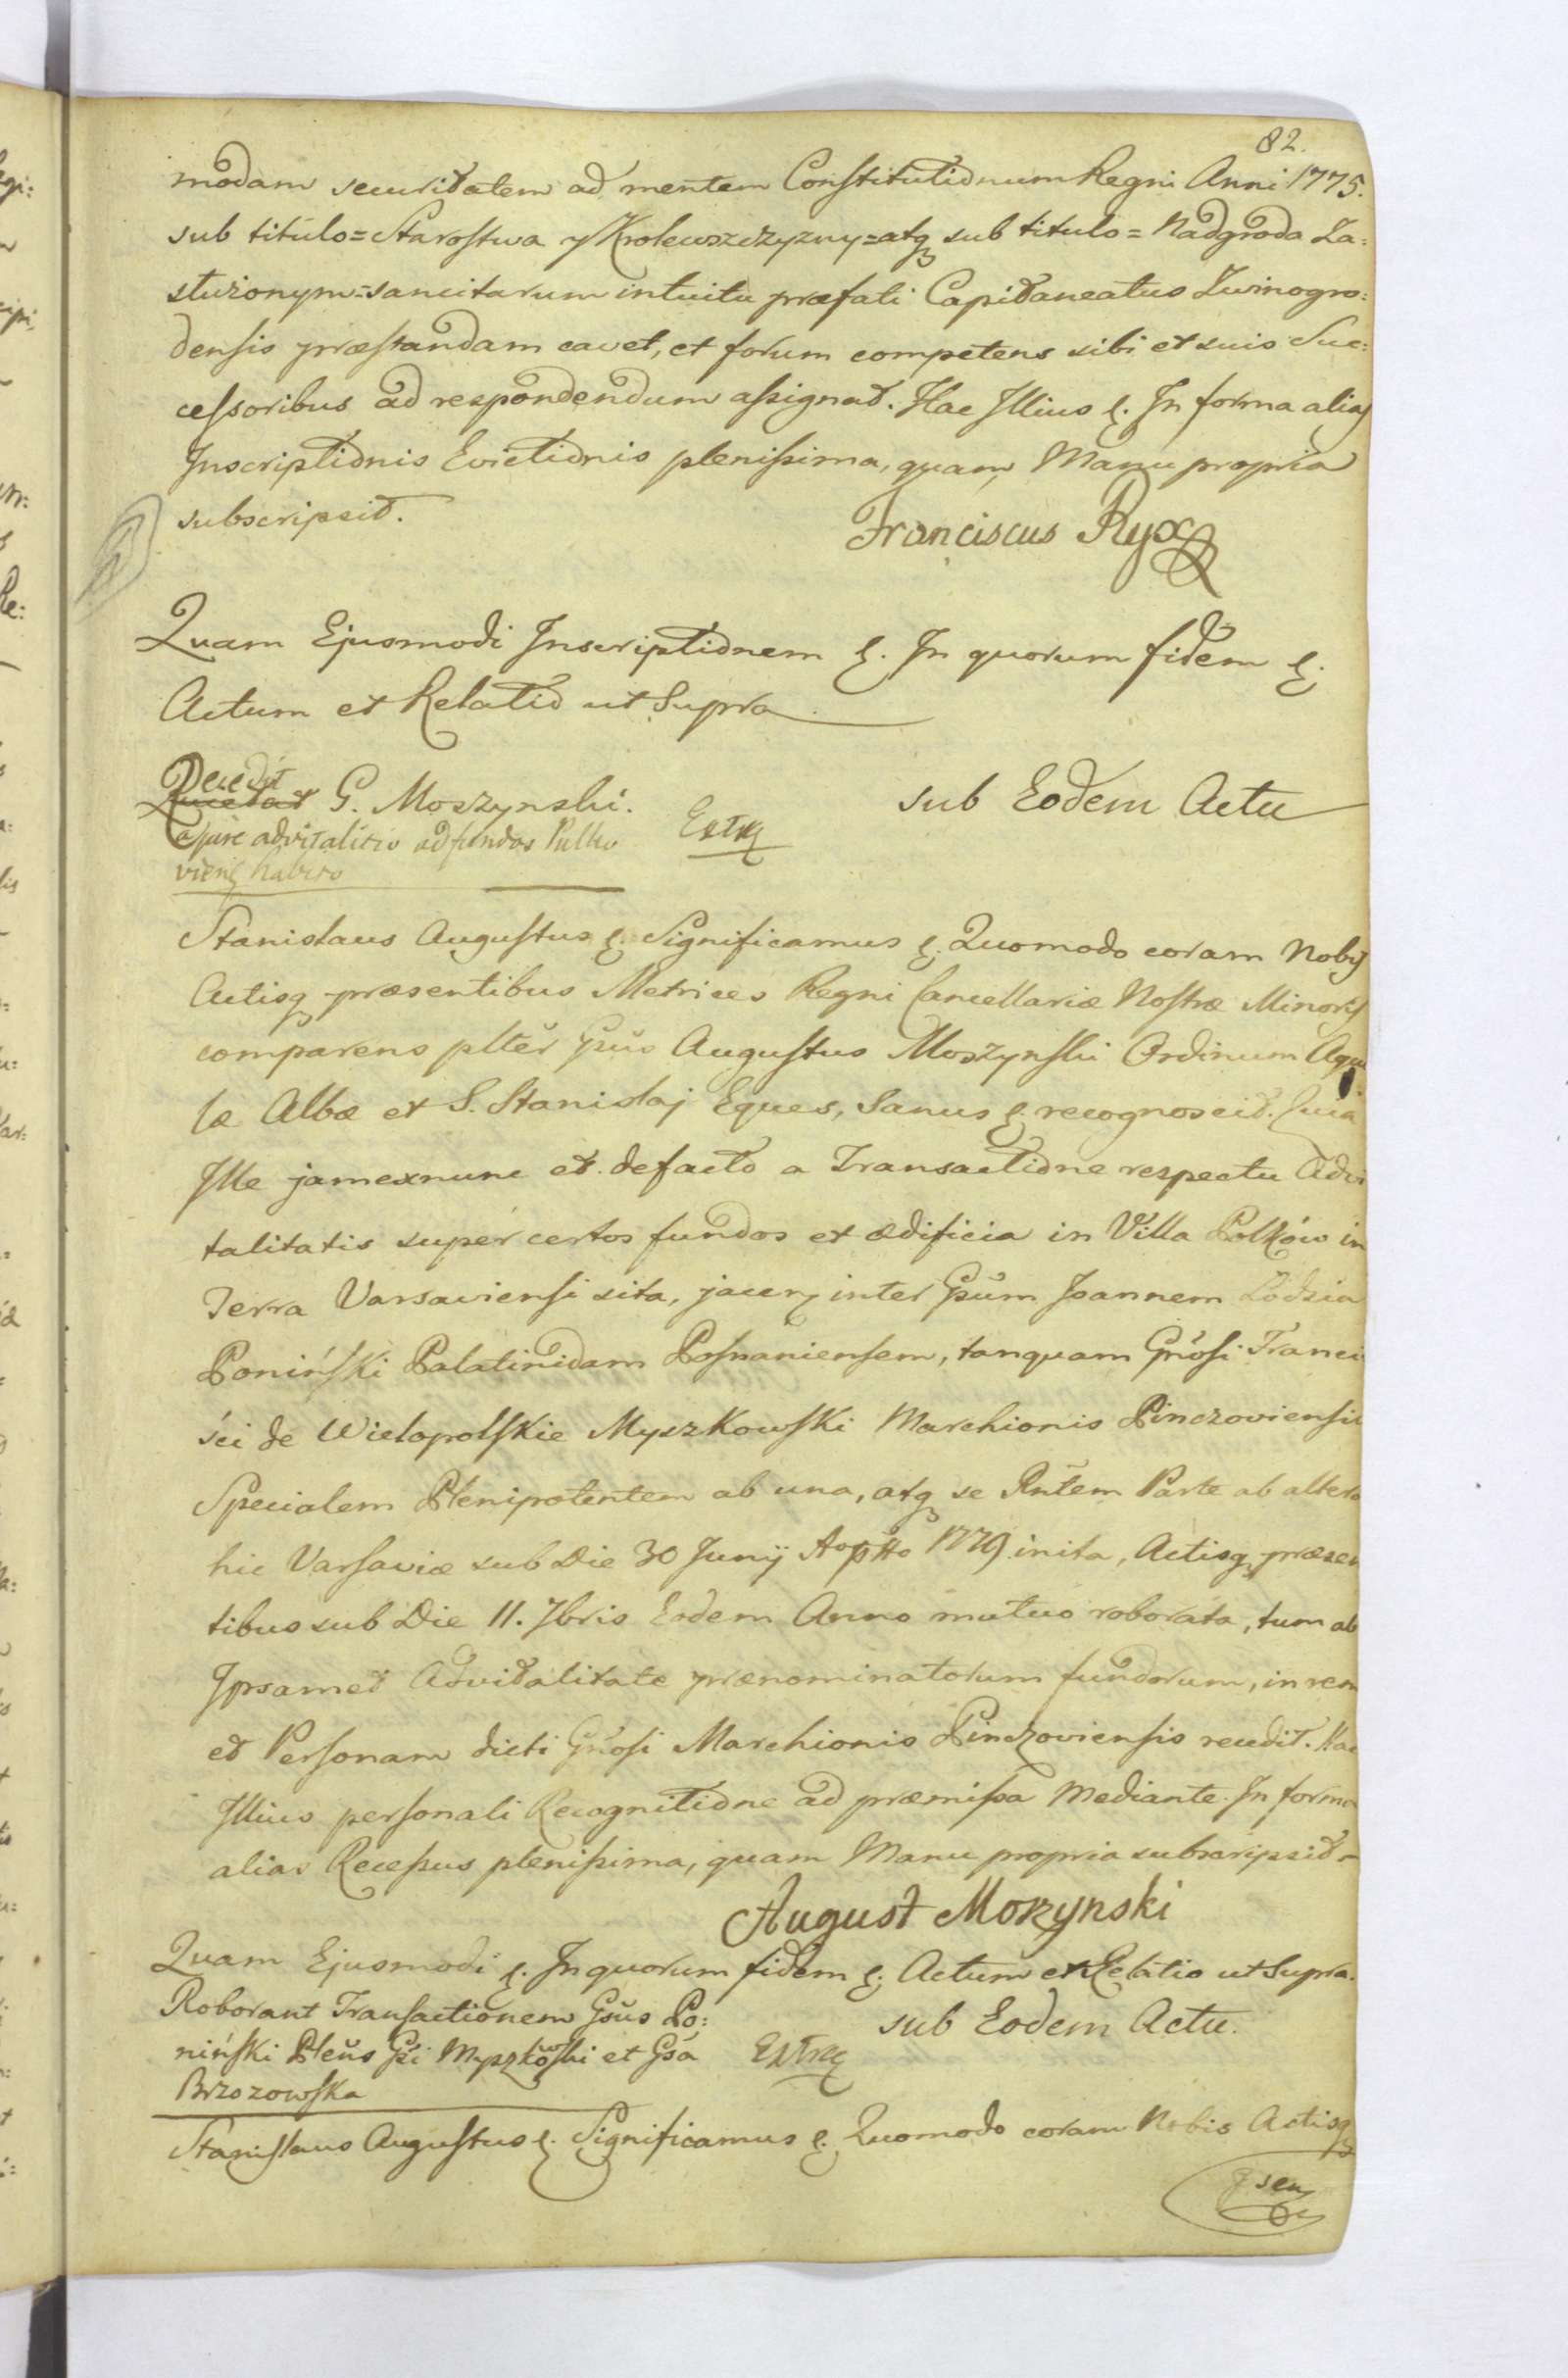 82.
modam securitatem ad mentem Constitutionum Regni Anni 1775.
sub titulo = Starostwa y Krolewszdzyzny = atq sub titulo = Nadgroda Za:
służonym = sancitarum intuitu præfati Capitaneatus Zwinogro:
densis præstandam cavet, et forum competens sibi et suis Suc:
cessoribus ad respondendum assignat. Hac Illius &. In forma alias
Inscriptionis Evictionis plenissima, quam Manu propria
subscripsit.
Franciscus Ryx
Quam Ejusmodi Inscriptionem &. In quorum fidem &.
Actum et Relatio ut Supra
Recedit
G. Moszynski.
sub Eodem Actu
a jure advitalitio ad fundos Pulko
Extr
habito
Stanislaus Augustus &. Significamus &. Quomodo coram Nobis
Actisq præsentibus Metrices Regni Cancellariæ Nostræ Minoris
comparens plter Gsus Augustus Moszynski Ordinum Aqui
læ Albæ et S. Stanislaj Eques, Sanus &. recognoscit. Quia
Ille jamexnunc et defacto a Transactione respectu Advi
talitatis super certos fundos et ædificia in Villa Polków in
Terra Varsaviensi sita, jacen inter Gsum Joannem Łodzia
Poniński Palatinidam Posnaniensem, tanquam Gnosi Franci
sci de Wielopolskie Myszkowski Marchionis Pinczoviensis
Specialem Plenipotentem ab una, atq se Rntem Parte ab altera
hic Varsaviæ sub Die 30 Junij Aoptto 1779 inita, Actisq præsen
tibus sub Die 11. 7bris Eodem Anno mutuo roborata, tum ab
Ipsamet Advitalitate prænominatorum fundorum, in rem
et Personam dicti Gnosi Marchionis Pinczoviensis recedit. Hac
Illius personali Recognitione ad præmissa Mediante. In forma
alias Recessus plenissima, quam Manu propria subscripsit -
August Moszynski
Quam Ejusmodi &. In quorum fidem &. Actum et Relatio ut Supra.
Roborant Transactionem Gsus Po:
sub Eodem Actu.
niński Plenus Gsi Myszkowski et Gsa
Extr
Brzozowska
Stanislaus Augustus &. Significamus &. Quomodo coram Nobis Actisq
sen